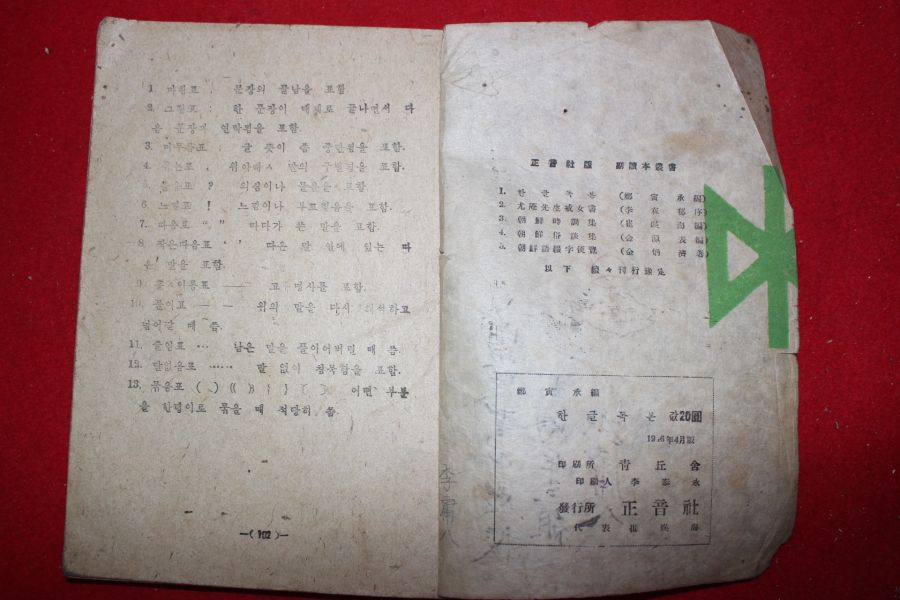 1. 마침표 . 문장의 끝남을 표함
2. 그침표 : 한 문장이 대체로 끝나면서 다
음 문장과 연락됨을 표함.
3. 머무름표 ; 글 뜻이 좀 중단됨을 표함.
4. 쉬는표 , 위아래 말의 구별됨을 표함.
5. 물음표 ? 의심이나 물음을 표함
6. 느낌표 ! 느낌이나 부르짖음을 표함.
7. 따옴표 “ ” 따다가 쓴 말을 표함.
8. 작은따옴표 ‘ ’ 따온 말 안에 있는 따
온 말을 표함.
9. 홀로이름표 —— 고유명사를 표함.
10. 풀이표 — — 위의 말을 다시 해석하고
넘어갈 때 씀.
11. 줄임표 … 남은 말을 줄이어버릴 때 씀.
12. 말없음표 …… 말 없이 침묵함을 표함.
13. 묶음표 ( ) 《 》 { } 〔 〕 어떤 부분
을 한덩이로 묶을 때 적당히 씀.
—( 102 )—
正音社版 副讀本叢書
1. 한글독본 (鄭寅承編)
2. 尤庵先生戒女書 (李在郁序)
3. 朝鮮時調集 (崔暎海編)
4. 朝鮮俗談集 (金 編)
5. 朝鮮語綴字便覽 (金炳濟著)
以下 續々刊行豫定
鄭寅承編
한글독본 값20圓
1946年4月版
印刷所 靑丘舍
印刷人 李泰永
發行所 正音社
代表 崔暎海
李